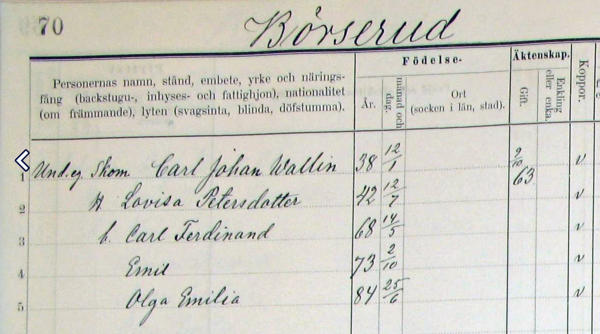 70
Börserud
Personernas namn, stånd, embete, yrke och närings-
fång (backstugu-, inhyses- och fattighjon), nationalitet
(om främmande), lyten (svagsinta, blinda, döfstumma).
Födelse-
År.
månad och
dag.
Ort
(socken i län, stad).
Äktenskap.
Gift.
Enkling
eller enka.
Koppor.
1 Und.eg. Skom Carl Johan Wallin 38 12/1 9/10 63 v
2 H Lovisa Petersdotter 42 12/7 v
3 b. Carl Ferdinand 68 14/5 v
4 Emil 73 2/10 v
5 Olga Emilia 84 25/6 v